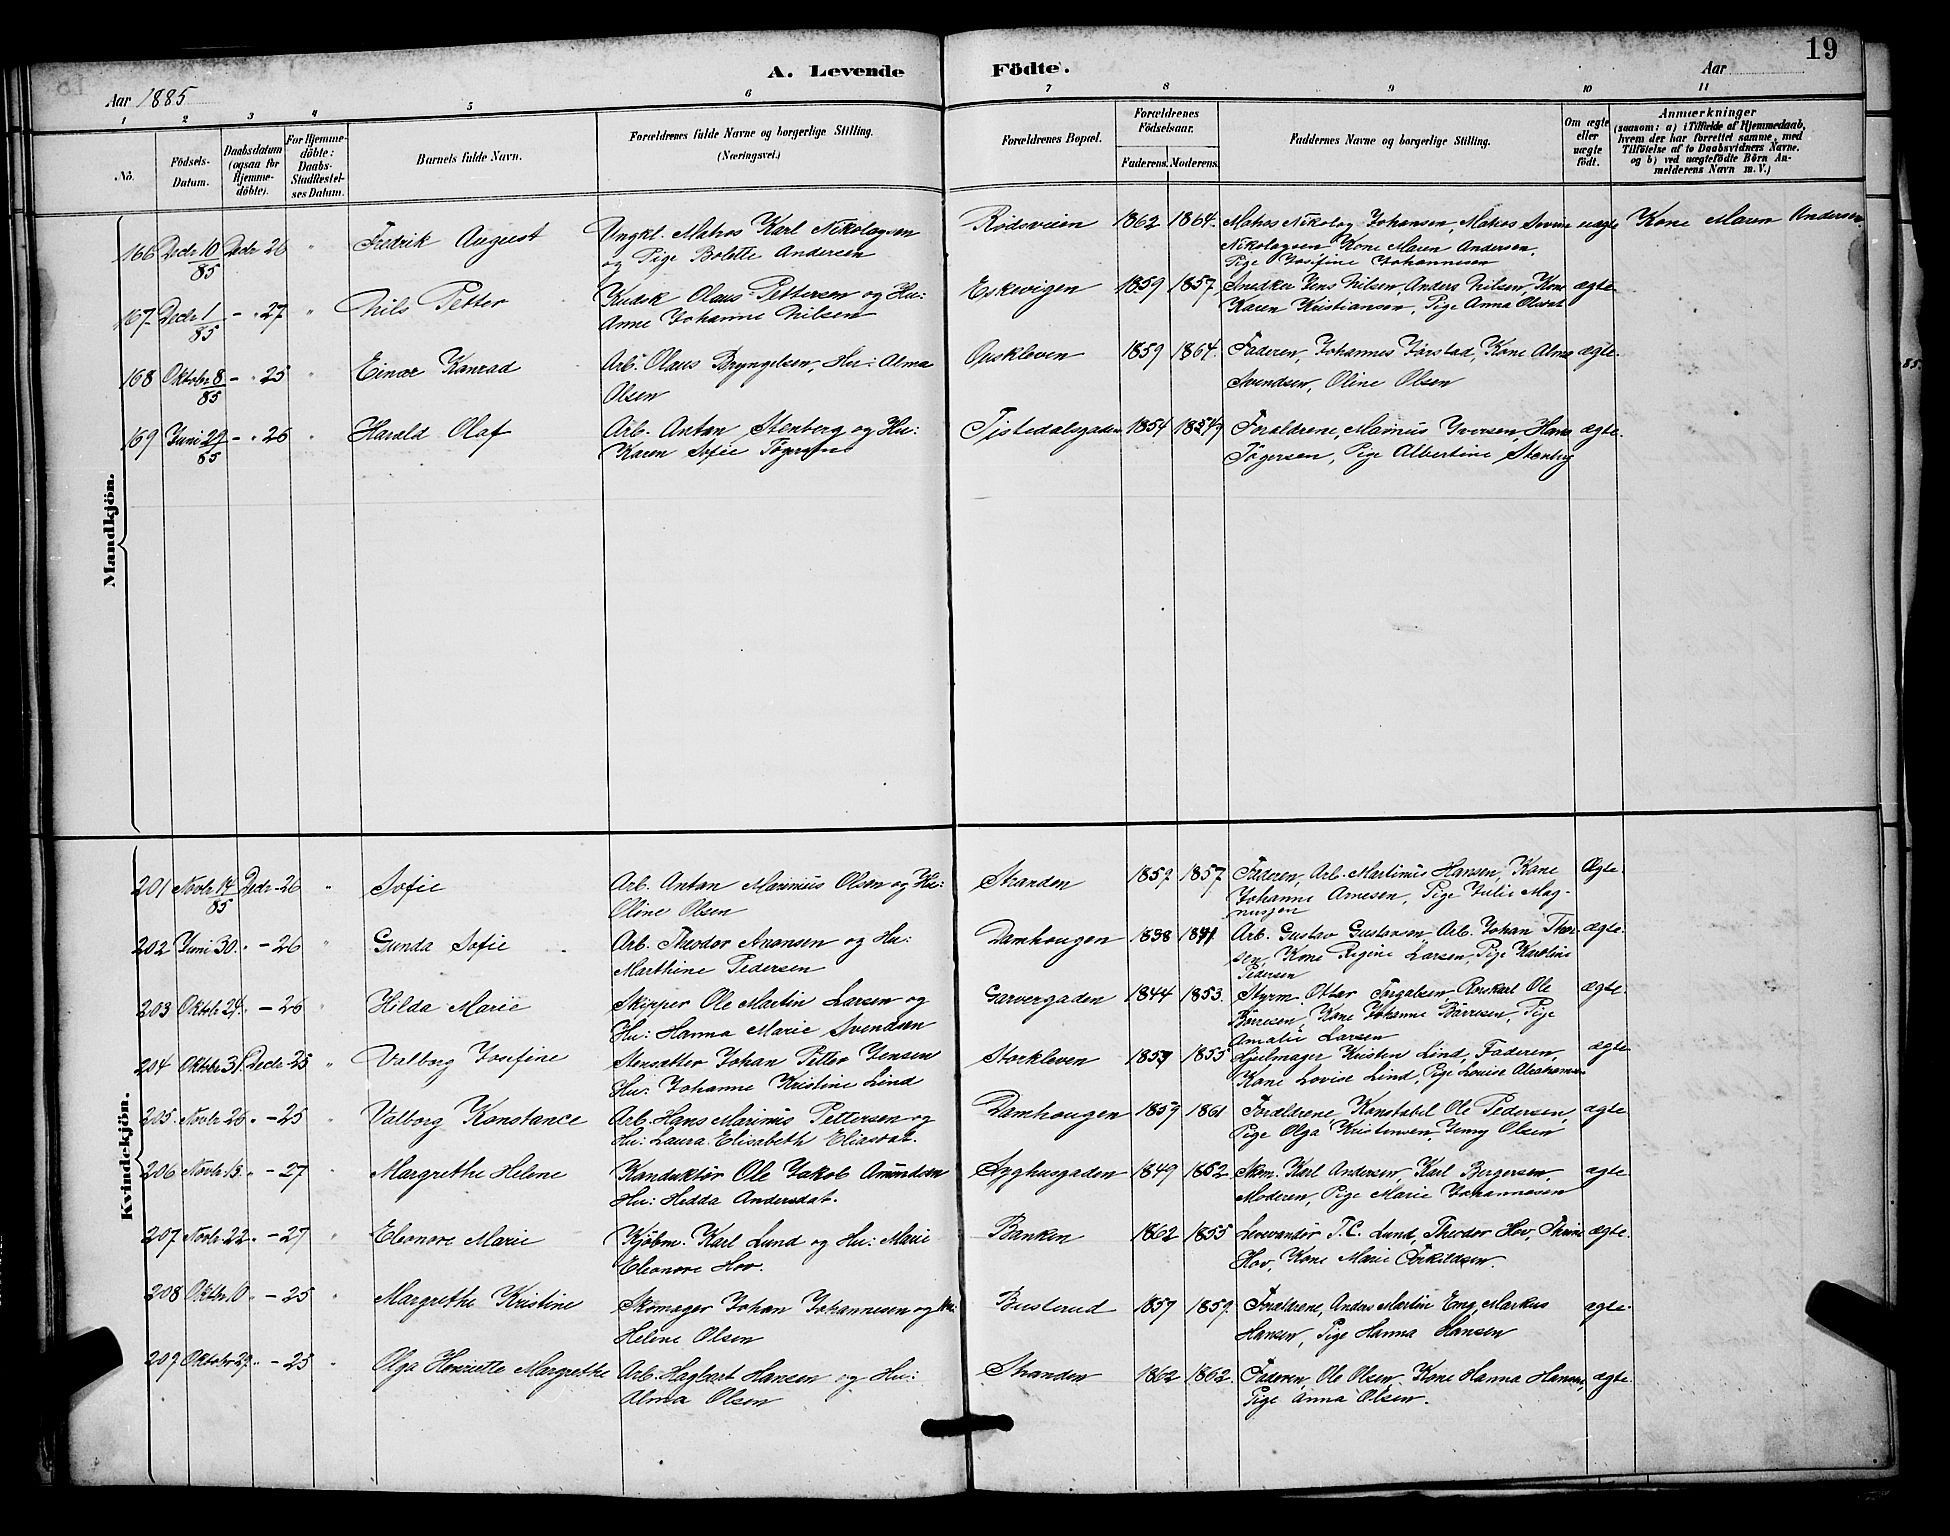 A. Levende Födte.
19
Aar 1885
Aar
1 2 3 4 5 6 7 8 9 10 11
No.
Födsels-Datum.
Daabsdatum (ogsaa for Hjemmedöbte).
For Hjemmedöbte: Daabs-Stadfæstelses Datum.
Barnets fulde Navn.
Forældrenes fulde Navne og borgerlige Stilling. (Næringsvei.)
Forældrenes Bopæl.
Forældrenes Födselsaar.
Faderens. Moderens.
Faddernes Navne og borgerlige Stilling.
Om ægte eller uægte födt.
Anmærkninger
(saasom: a) i Tilfælde af Hjemmedaab, hvem der har forrettet samme, med Tilföielse af to Daabsvidners Navne. og b) ved uægtefödte Börn Anmelderens Navn m. V.)
Mandkjön.
166 Decbr 10/85 Decbr 26 " Fredrik August Ungkl. Matros Karl Nikolaysen Rödsveien 1862 1864. Matros Nikolay Johansen, Matros Severin uægte Kone Maren Andersen
og Pige Bolette Andersen Nikolaysen Kone Maren Andersen,
Pige Josefine Johannesen
167 Decbr 1/85 - " 27 " Nils Petter Kudsk Olaus Pettersen og Hu: Eskevigen 1859 1857. Snedker Jens Nilsen, Anders Nilsen, Kone ægte
Anne Johanne Nilsen Karen Kristiansen, Pige Anna Olsdat
168 Oktobr 8/85 - " 25 " Einar Konrad Arb. Olaus Bryngelsen, Hu: Alma Orskleven 1859 1864. Faderen, Johannes Jørstad, Kone Alma ægte.
Olsen Svendsen, Oline Olsen
169 Juni 29/85 - " 26 " Harald Olaf Arb. Anton Stenberg og Hu: Tistedalsgaden 1854 1849 Forældrene, Marinus Iversen, Hans ægte.
Karen Sofie Tøgersen Tøgersen, Pige Albertine Stenberg
Kvindekjön.
201 Novbr 14/85 Decbr 26 " Sofie Arb. Anton Marinius Olsen og Hu: Stranden 1859 1857 Faderen, Arb. Martinus Hansen, Kone Ægte.
Oline Olsen Johanne Arnesen, Pige Julie Mag-
nussen
202 Juni 30. " - 26 " Gunda Sofie Arb. Theodor Aronsen og Hu: Damhougen 1838 1841. Arb. Gustav Gustavsen Arb. Johan Thor- ægte.
Marthine Pedersen sen, Kone Regine Larsen, Pige Karoline
Pedersen
203 Oktbr 24. " - 26 " Hilda Marie Skipper Ole Martin Larsen og Garvergaden 1844 1853. Styrm. Ole ægte.
Hu: Hanna Marie Svendsen Børresen, Kone Johanne Børresen, Pige
Amalie Larsen
204 Oktbr 31. Decbr 25 " Valborg Josefine Stensætter Johan Petter Jensen Storkleven 1855 Hjulmager Kristen Lind, Faderen, ægte
Hu: Johanne Kristine Lind Kone Lovise Lind, Pige Louise Abrahamsen
205. Novbr 26 " - 25 " Valborg Konstance Arb. Hans Marinus Pettersen og Damhougen 1859 1861 Forældrene Konstabel Ole Pedersen, ægte
Hu: Laura Elisabeth Eliasdat. Pige Olga Kristensen, Jenny Olsen
206 Novbr 13. " - 27 " Margrethe Helene Konduktør Ole Jakob Amundsen Syghusgaden 1849 1852. Skm. Karl Andersen, Karl Børgersen, ægte
Hu: Hedda Andersdat. Moderen, Pige Marie Johannesen
207 Novbr 22. " - 27 " Eleonore Marie Kjøbm. Karl Lund og Hu: Marie Banken 1862 1855 Leverandør T. C. Lund, Theodor Hov, Thrine ægte.
Eleonore Hov. Hov, Kone Marie
208 Oktbr 10 " - 25 " Margrethe Kristine Skomager Johan Johannesen og Hu: Busterud 1857 1859. Forældrene, Anders Martin Eng, Markus ægte.
Helene Olsen Hansen, Pige Hanna Hansen
209 Oktobr 29. " - 25 " Olga Henriette Margrethe Arb. Hagbart Hansen og Hu: Stranden 1862 1862. Faderen, Ole Olsen, Kone Hanna Hansen, ægte.
Alma Olsen Pige Anna Olsen.